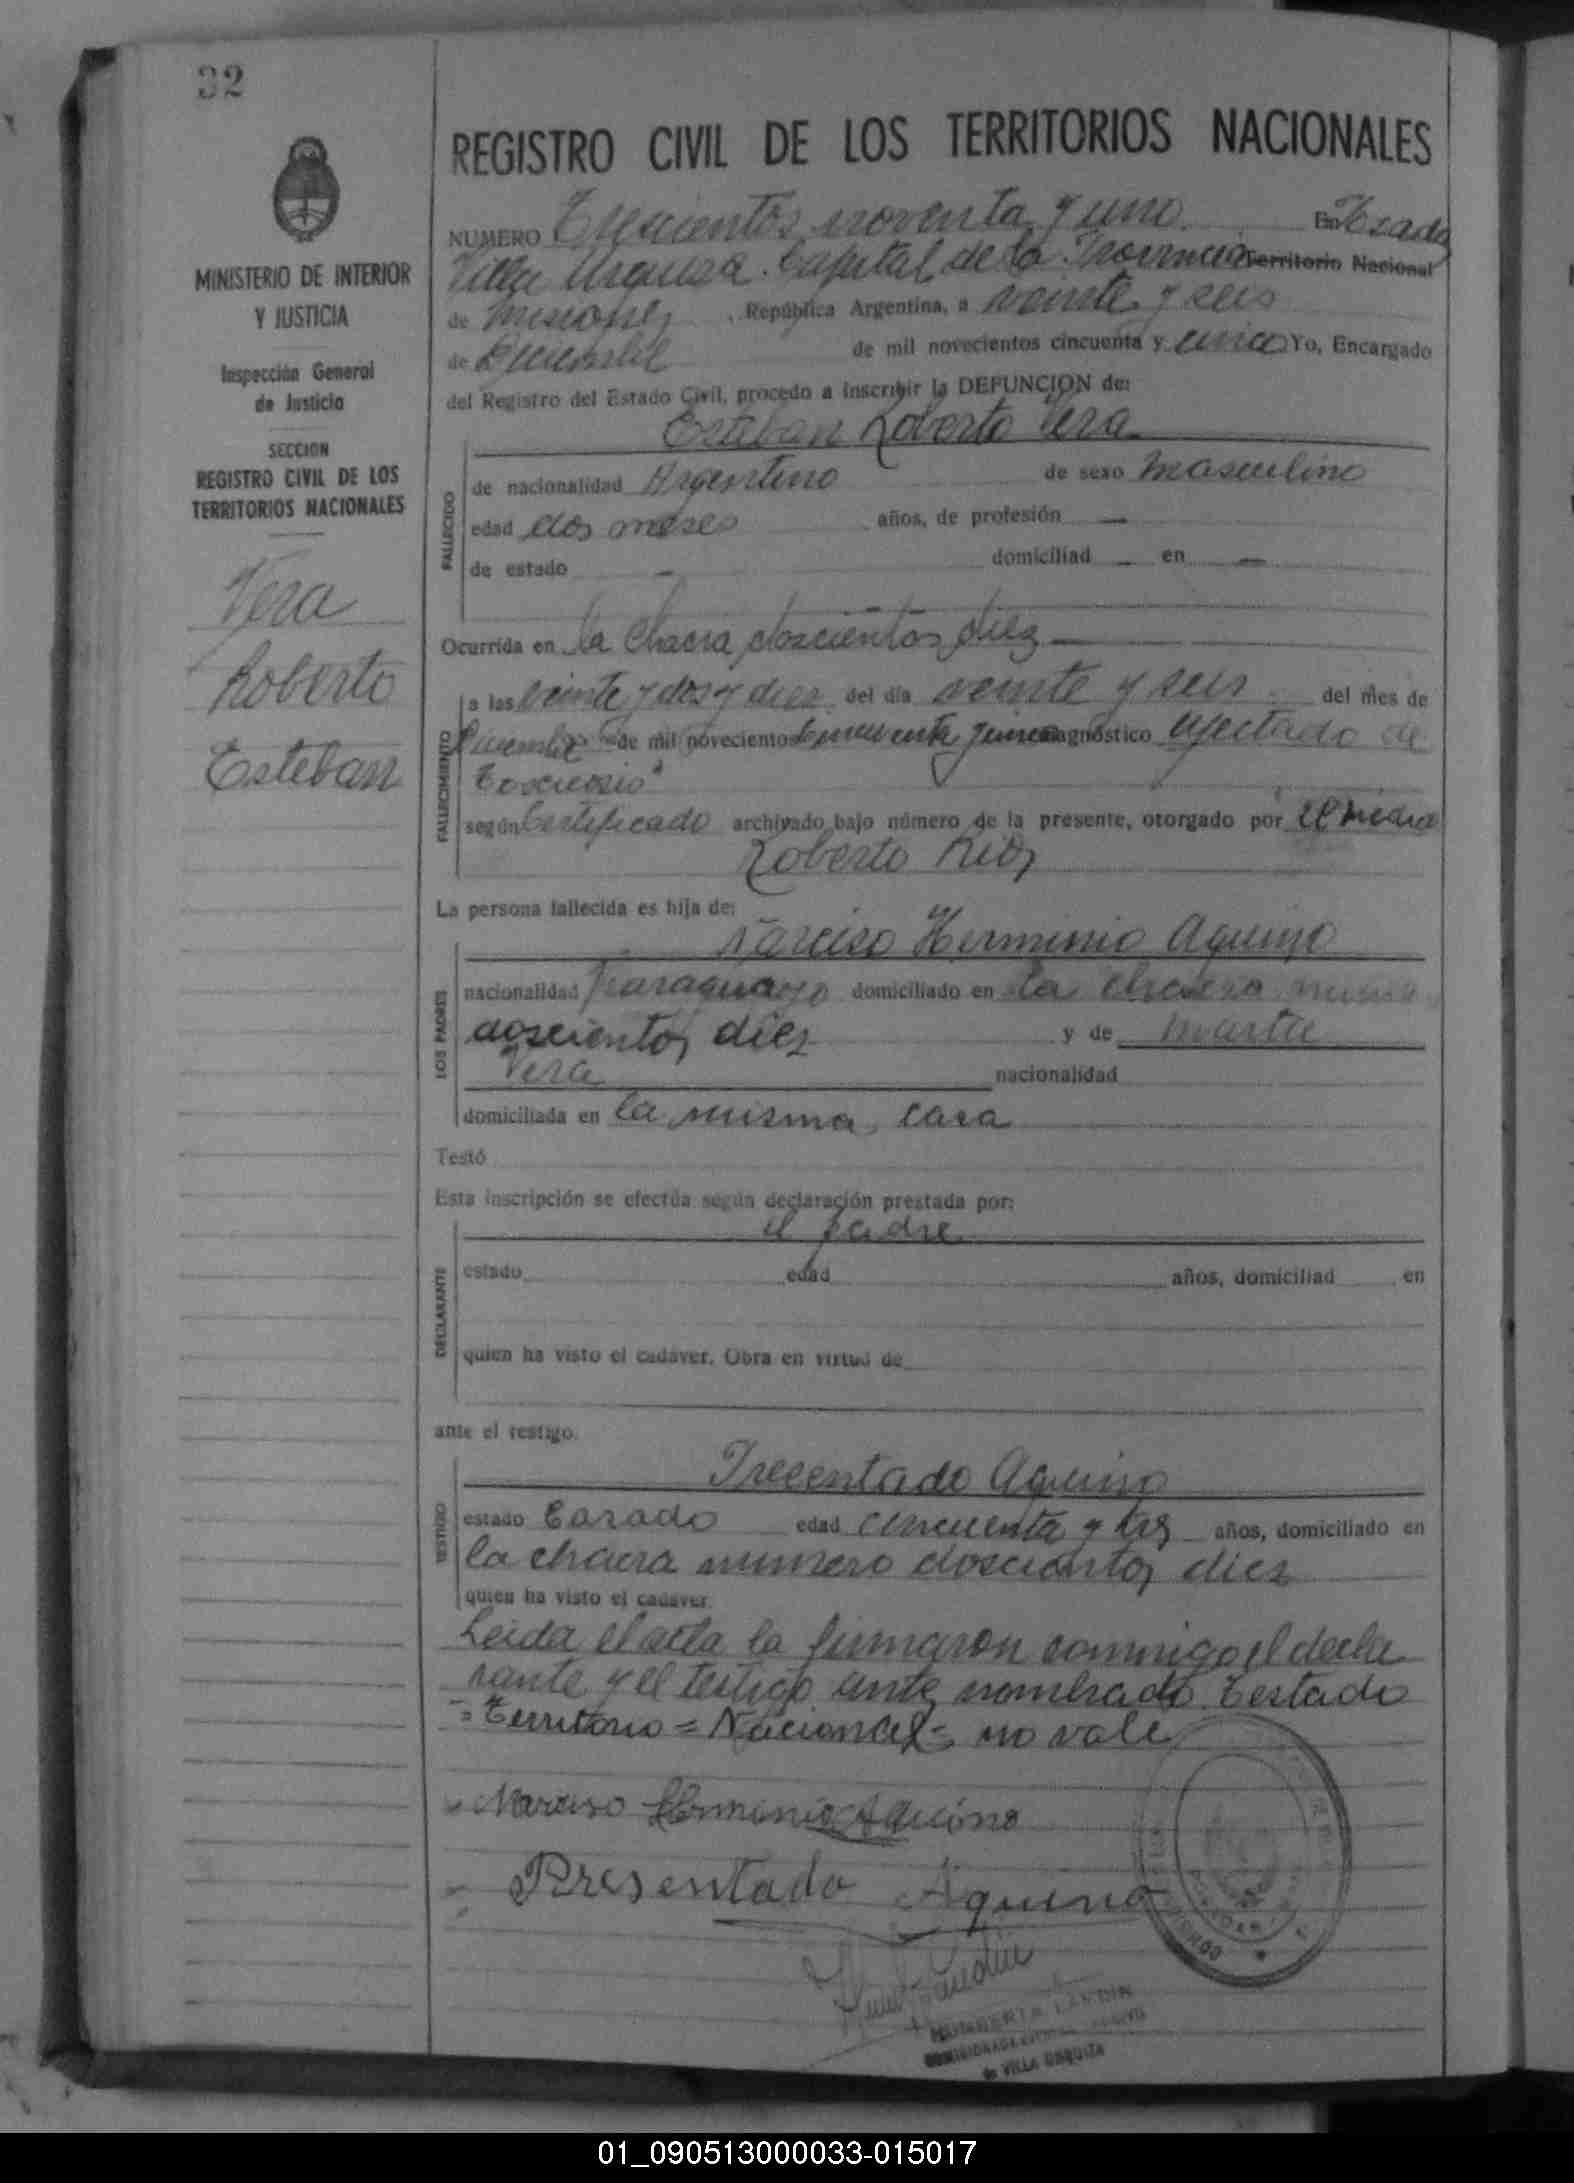 32
MINISTERIO DE INTERIOR
Y JUSTICIA
Inspección General
de Justicia
SECCION
REGISTRO CIVIL DE LOS
TERRITORIOS NACIONALES
Vera
Roberto
Esteban
REGISTRO CIVIL DE LOS TERRITORIOS NACIONALES
NUMERO Trescientos noventa y uno. En
Villa Urquiza. Capital de la Provincia Territorio Nacional
de Misiones, República Argentina, a veinte y seis
de Diciembre de mil novecientos cincuenta y uno Yo, Encargado
del Registro del Estado Civil, procedo a inscribir la DEFUNCION de:
Esteban Roberto Vera
FALLECIDO
de nacionalidad Argentino de sexo masculino
edad dos meses años, de profesión —
de estado — domiciliad — en —
Ocurrida en la chacra doscientos diez —
FALLECIMIENTO
a las veinte y dos y diez del día veinte y seis del mes de
Diciembre de mil novecientos cincuenta y uno diagnóstico afectado de
según Certificado archivado bajo número de la presente, otorgado por el
Roberto Rios
La persona fallecida es hija de:
Narciso Herminio Aquino
LOS PADRES
nacionalidad Paraguayo domiciliado en la chacra
doscientos diez y de Marta
Vera nacionalidad
domiciliada en la misma casa
Testó
Esta inscripción se efectúa según declaración prestada por:
el padre
DECLARANTE
estado edad años, domiciliad en
quien ha visto el cadáver. Obra en virtud de
ante el testigo.
Precentado Aquino
TESTIGO
estado Casado edad cincuenta y tres años, domiciliado en
la chacra numero doscientos diez
quien ha visto el cadáver.
Leida el acta la firmaron conmigo el decla
rante y el testigo ante nombrado. Testado
= Territorio = Nacional = no vale
Narciso Herminio Aquino
Presentado Aquino
LANDIN
de VILLA URQUIZA
01_090513000033-015017